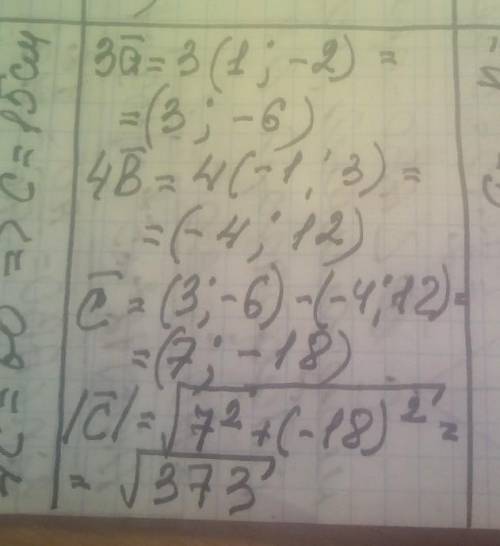 3a̅ = 3(1; -2) =
= (3; -6)
4B̅ = 4(-1; 3) =
= (-4; 12)
C̅ = (3; -6) - (-4; 12) =
= (7; -18)
|C̅| = √7² + (-18)² =
= √373
=> C = 15см